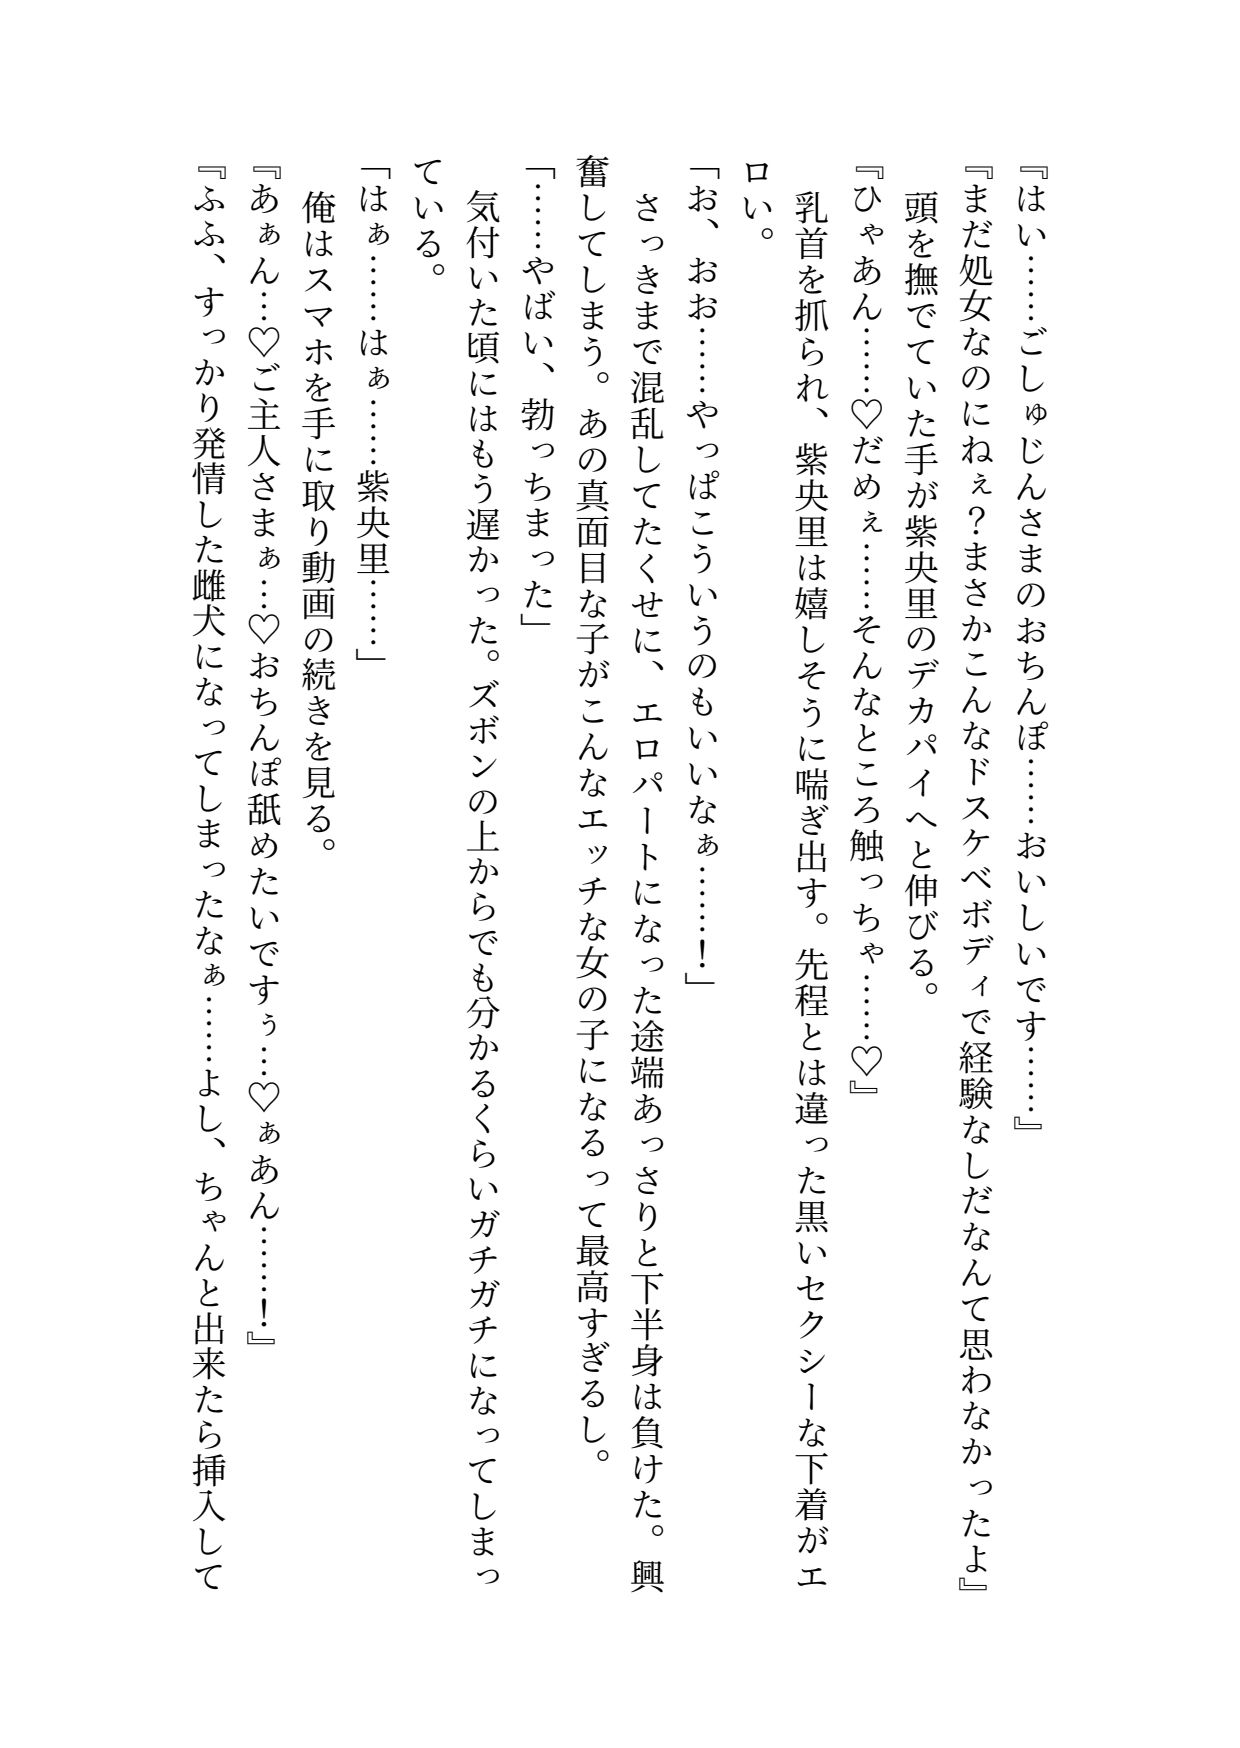 『はい……ごしゅじんさまのおちんぽ……おいしいです……』
『まだ処女なのにねぇ？まさかこんなドスケベボディで経験なしだなんて思わなかったよ』
　頭を撫でていた手が紫央里のデカパイへと伸びる。
『ひゃあん……♡だめぇ……そんなところ触っちゃ……♡』
　乳首を抓られ、紫央里は嬉しそうに喘ぎ出す。先程とは違った黒いセクシーな下着がエ
ロい。
「お、おお……やっぱこういうのもいいなぁ……！」
　さっきまで混乱してたくせに、エロパートになった途端あっさりと下半身は負けた。興
奮してしまう。あの真面目な子がこんなエッチな女の子になるって最高すぎるし。
「……やばい、勃っちまった」
　気付いた頃にはもう遅かった。ズボンの上からでも分かるくらいガチガチになってしまっ
ている。
「はぁ……はぁ……紫央里……」
　俺はスマホを手に取り動画の続きを見る。
『あぁん…♡ご主人さまぁ…♡おちんぽ舐めたいですぅ…♡ぁあん……！』
『ふふ、すっかり発情した雌犬になってしまったなぁ……よし、ちゃんと出来たら挿入して